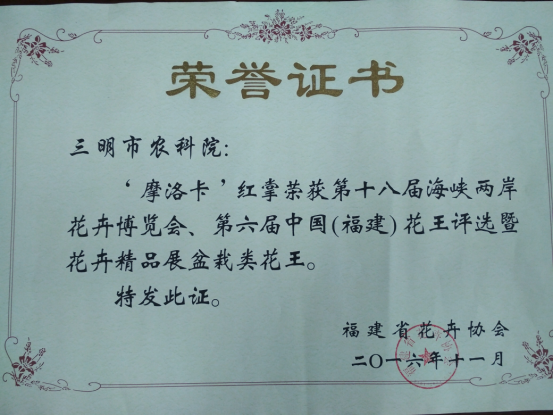 荣誉证书
三明市农科院：
‘摩洛卡’红掌荣获第十八届海峡两岸
花卉博览会、第六届中国(福建)花王评选暨
花卉精品展盆栽类花王。
特发此证。
福建省花卉协会
二〇一六年十一月